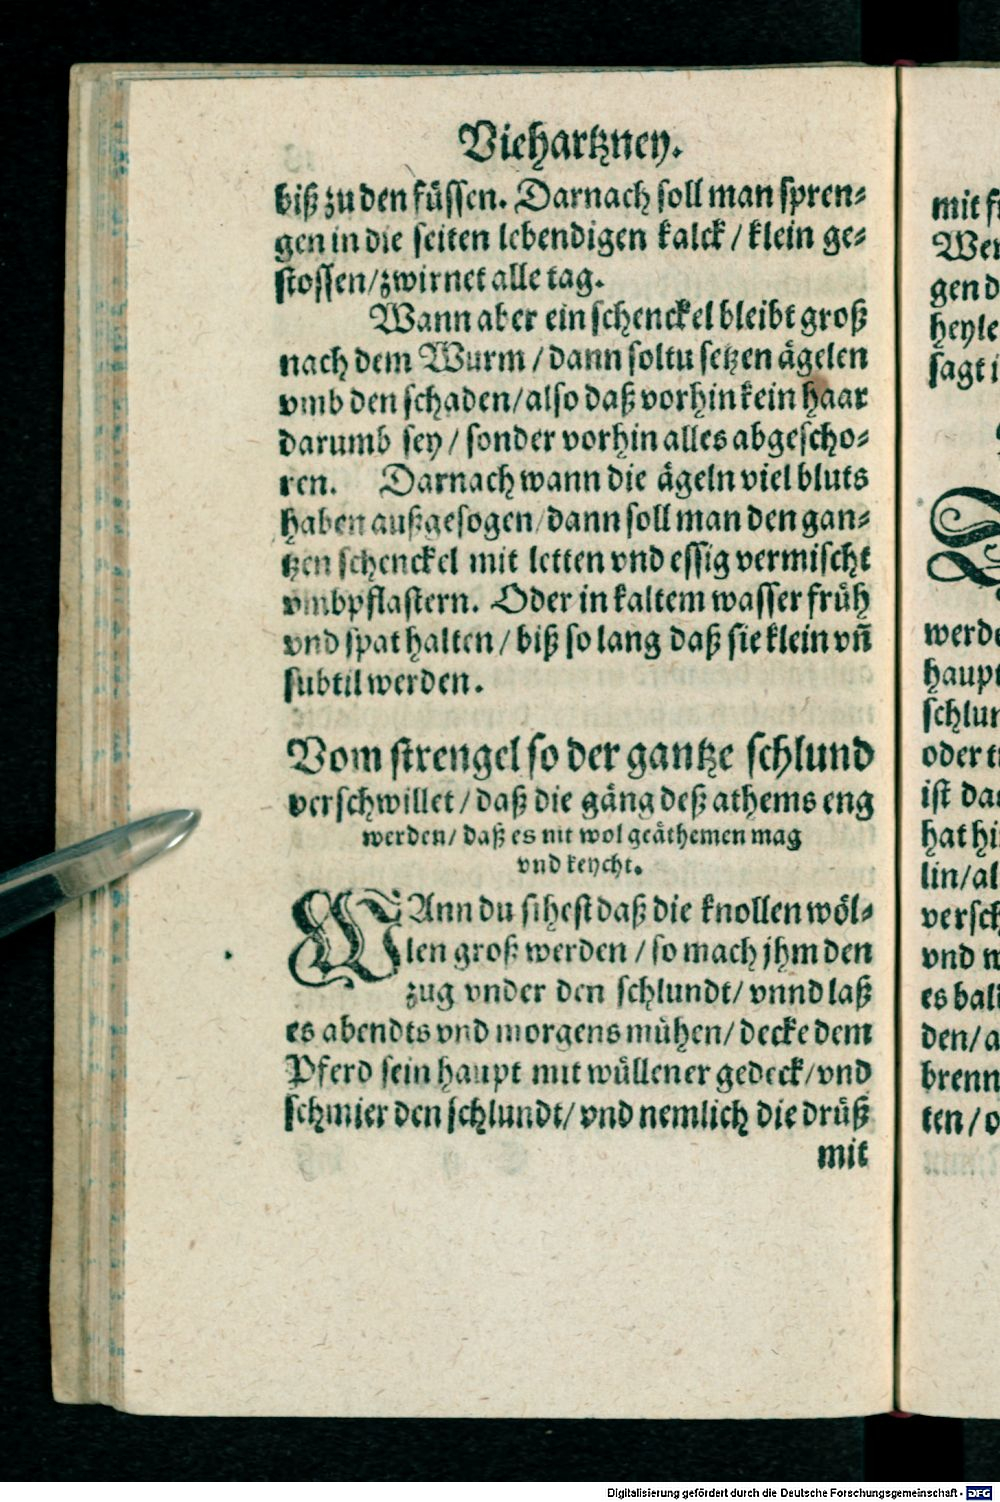 Viehartzney.
biß zu den füssen. Darnach soll man spren⸗
gen in die seiten lebendigen kalck / klein ge⸗
stossen/zwirnet alle tag.
Wann aber ein schenckel bleibt groß
nach dem Wurm / dann soltu setzen ägelen
vmb den schaden/also daß vorhin kein haar
darumb sey / sonder vorhin alles abgescho⸗
ren. Darnach wann die ägeln viel bluts
haben außgesogen/dann soll man den gan⸗
tzen schenckel mit letten vnd essig vermischt
vmbpflastern. Oder in kaltem wasser früh
vnd spat halten / biß so lang daß sie klein vñ
subtil werden.
Vom strengel so der gantze schlund
verschwillet / daß die gäng deß athems eng
werden/ daß es nit wol geäthemen mag
vnd keycht.
WAnn du sihest daß die knollen wöl⸗
len groß werden / so mach jhm den
zug vnder den schlundt/ vnnd laß
es abendts vnd morgens mühen/ decke dem
Pferd sein haupt mit wüllener gedeck/vnd
schmier den schlundt/ vnd nemlich die drüß
mit
mit
Wer
gen d
heyle
sagt
werde
haupt
schlun
oder
ist
hat
lin/al
versch
vnd
es
den/
brenn
ten/
Digitalisierung gefördert durch die Deutsche Forschungsgemeinschaft - DFG